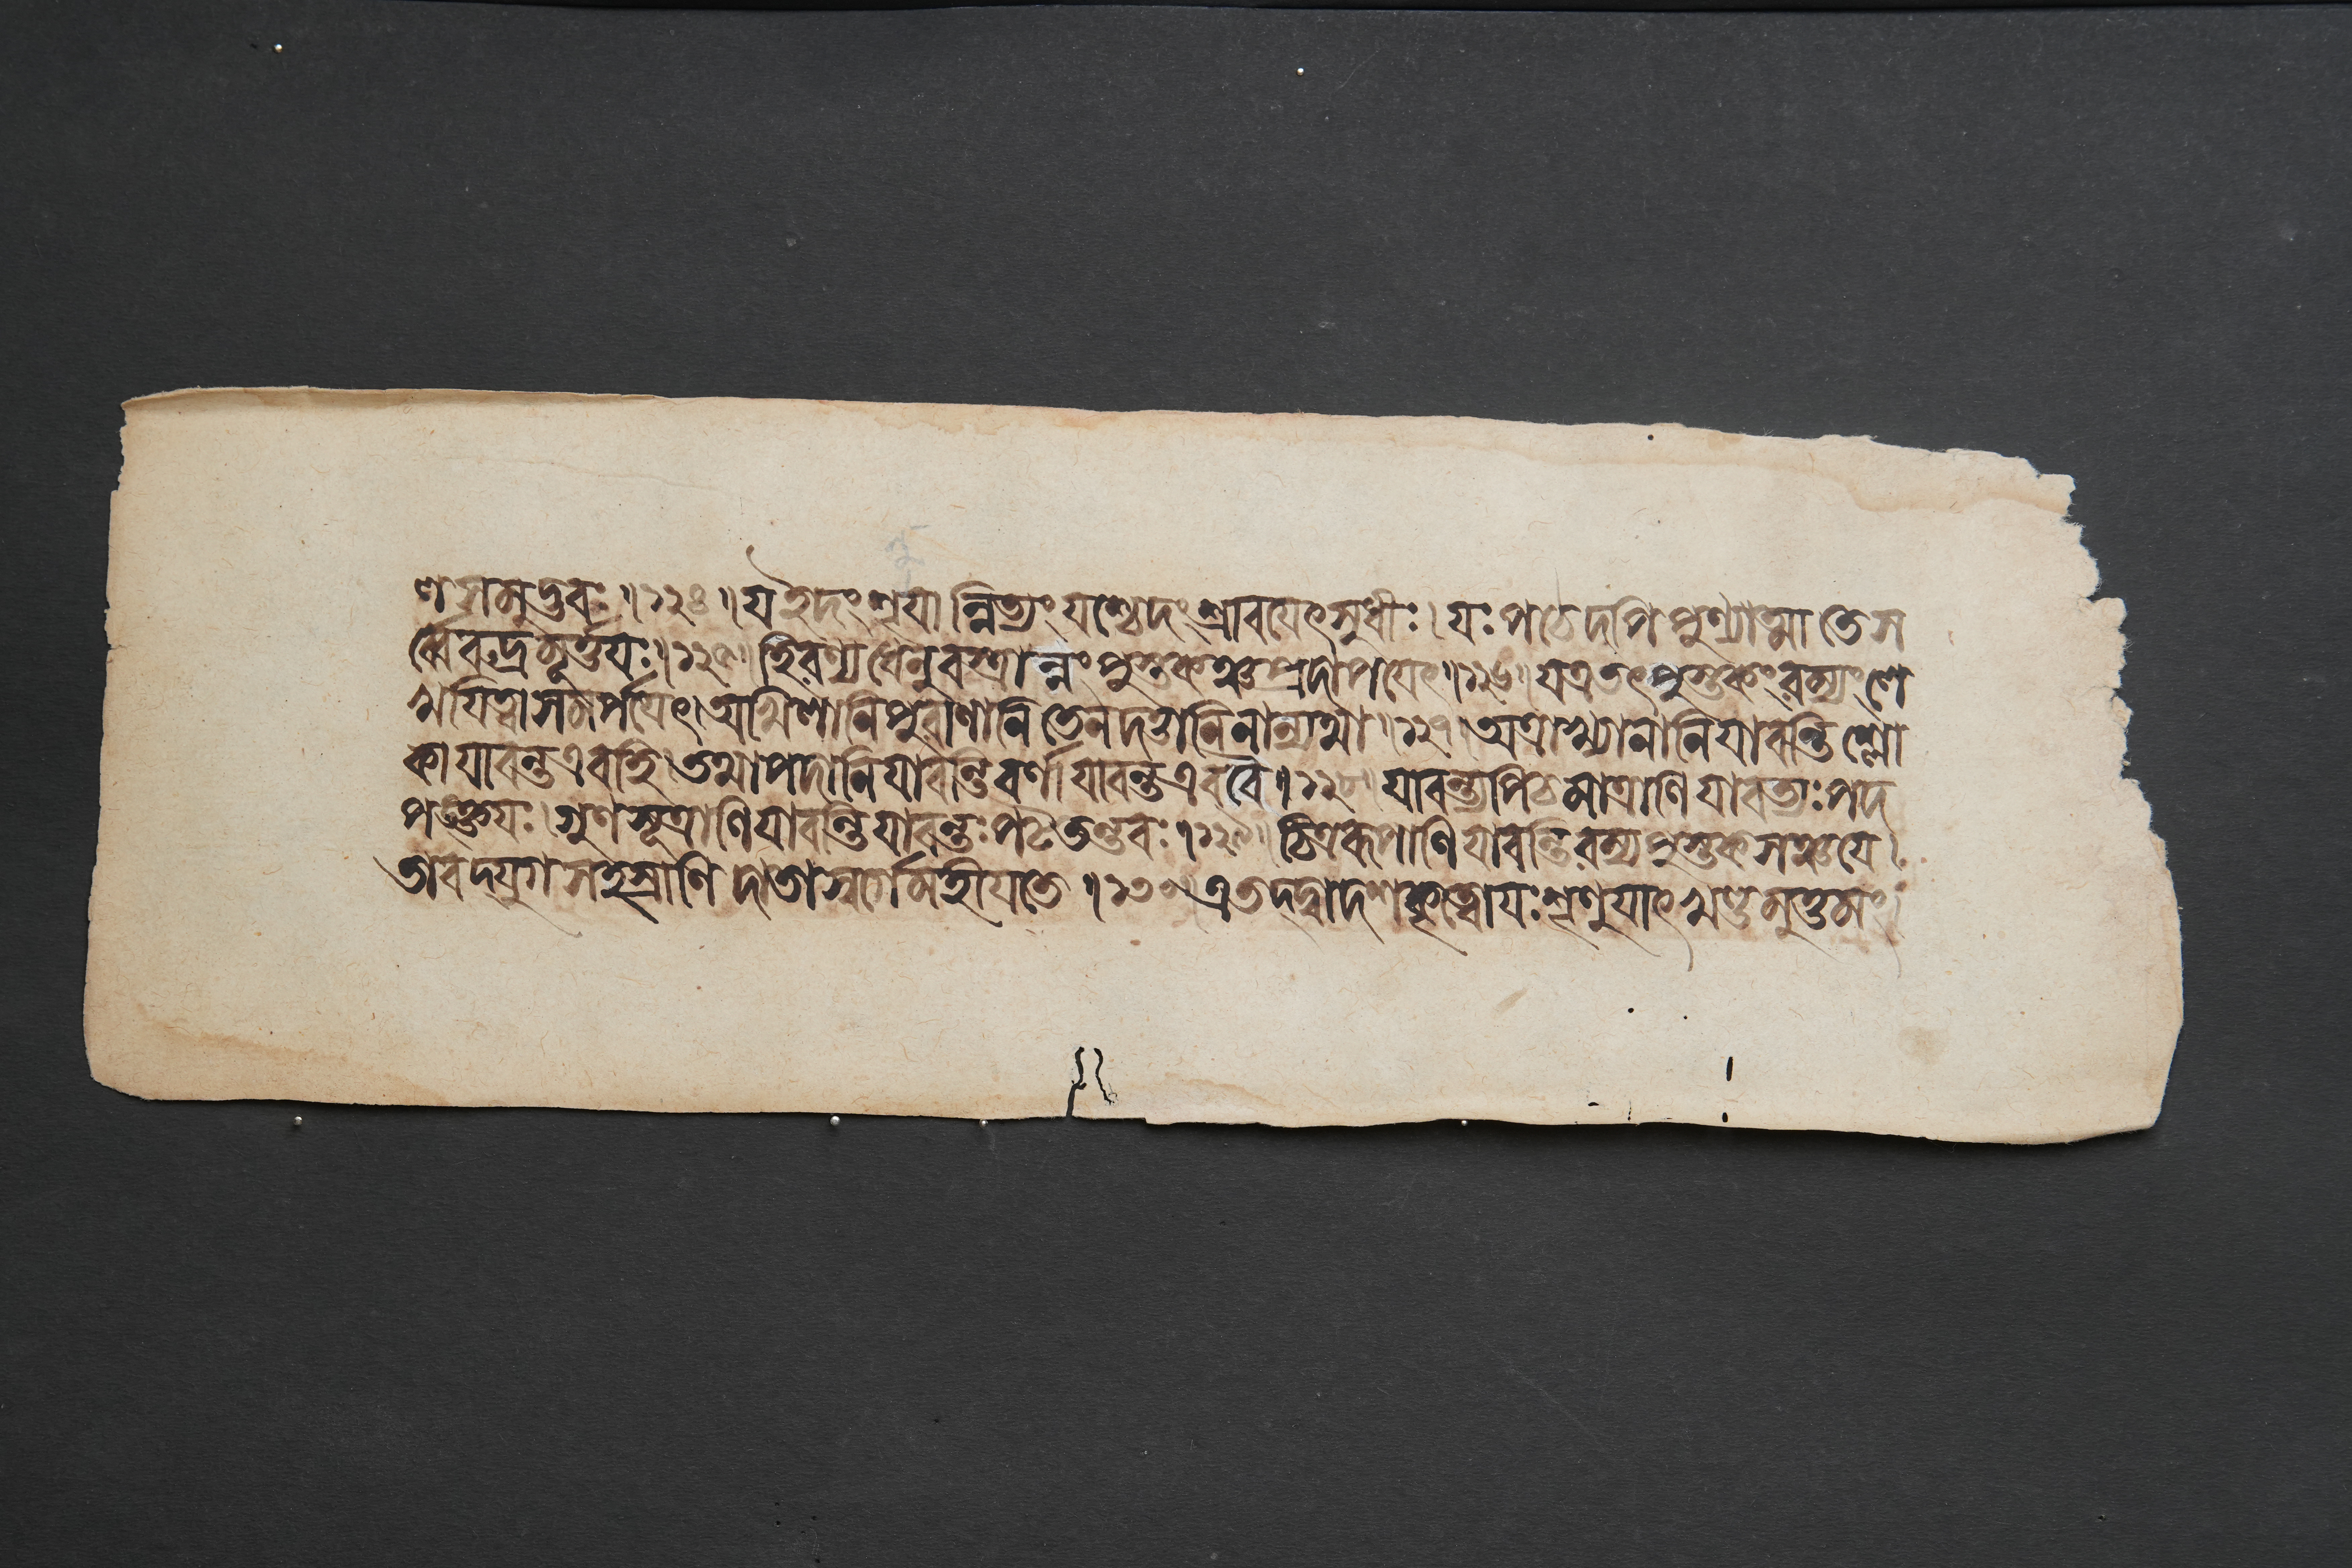 ণ সমুদ্ভবঃ॥১২৪॥য ইদংশৃণুযান্নিত্যংযশ্চেদংশ্রাবযেৎসুধীঃ।যঃপঠেদপিপুণ্যাত্মাতেস
র্ব্বেরুদ্রমূর্ত্তযঃ।১২৫।হিরণ্যধেনুবস্ত্রান্নংপুস্তকঞ্চপ্রদাপযেৎ।১২৬।যএতৎপুস্তকংরম্যংলে
খযিত্বাসমর্পযেৎ।অখিলানিপুরাণানিতেনদত্তানিনান্যথা।১২৭।অত্রাখ্যানানিযাবন্তিশ্লো
কাযাবন্তএবহি।তথাপদানিযাবন্তিবর্ণাযাবন্তএববৈ।১২৮।যাবন্ত্যপিচমাত্রাণিযাবত্যঃপদ
পঙ্ক্তযঃ।গুণসূত্রাণিযাবন্তিযাবন্তঃপটতন্তবঃ।১২৯।চিত্ররূপাণিযাবন্তিরম্যপুস্তকসঞ্চযে।
তাবদ্যুগসহস্রাণিদাতাস্বর্গেমহীযতে।১৩০।এতদ্দ্বাদশকৃত্বোযঃশৃণুযাৎখণ্ডমুত্তমং।